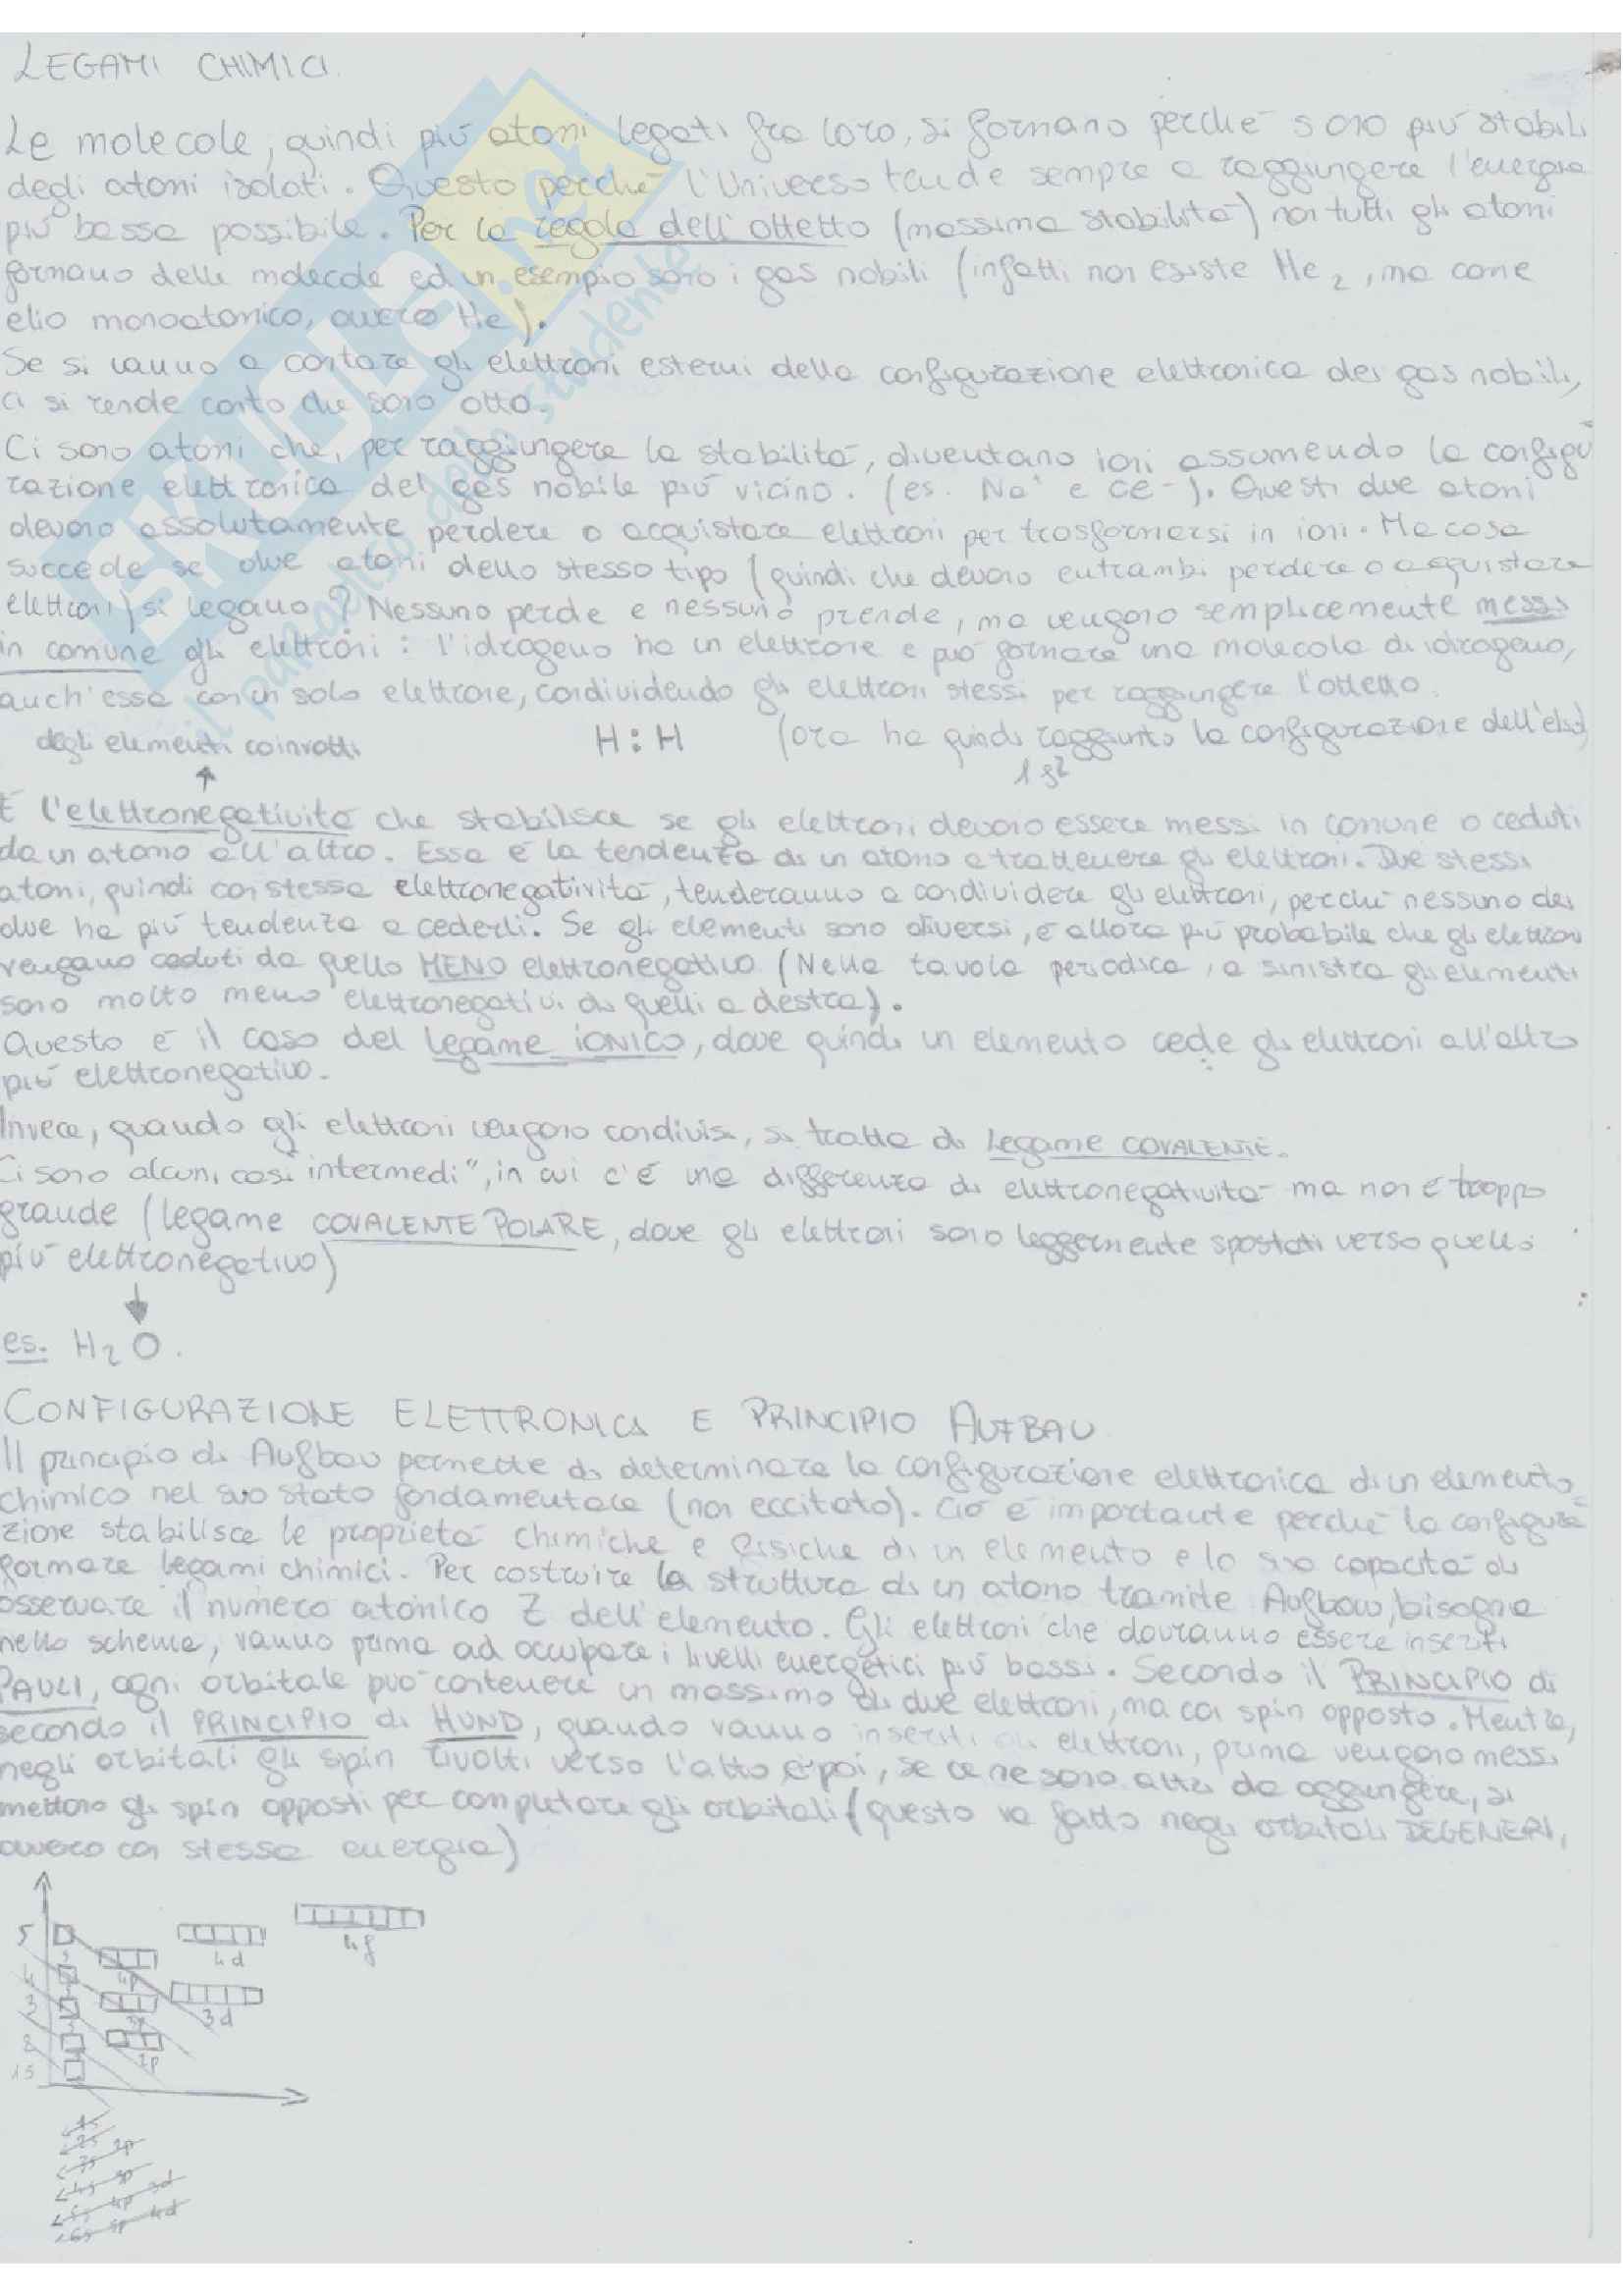 LEGAMI CHIMICI.
Le molecole, quindi più atomi legati fra loro, si formano perché sono più stabili
degli atomi isolati. Questo perché l'Universo tende sempre a raggiungere l'energia
più bassa possibile. Per la regola dell'ottetto (massima stabilità) non tutti gli atomi
formano delle molecole ed un esempio sono i gas nobili (infatti non esiste He2, ma come
elio monoatomico, ovvero He).
Se si vanno a contare gli elettroni esterni della configurazione elettronica dei gas nobili,
ci si rende conto che sono otto.
Ci sono atomi che, per raggiungere la stabilità, diventano ioni assumendo la configu
razione elettronica del gas nobile più vicino. (es. Na+ e Cl-). Questi due atomi
devono assolutamente perdere o acquistare elettroni per trasformarsi in ioni. Ma cosa
succede se due atomi dello stesso tipo (quindi che devono entrambi perdere o acquistare
elettroni) si legano? Nessuno perde e nessuno prende, ma vengono semplicemente messi
in comune gli elettroni: l'idrogeno ha un elettrone e può formare una molecola di idrogeno,
anch'essa con un solo elettrone, condividendo gli elettroni stessi per raggiungere l'ottetto.
degli elementi coinvolti H:H (ora ha quindi raggiunto la configurazione dell'elio)
1s2
È l'elettronegatività che stabilisce se gli elettroni devono essere messi in comune o ceduti
da un atomo all'altro. Essa è la tendenza di un atomo a trattenere gli elettroni. Due stessi
atomi, quindi con stessa elettronegatività, tenderanno a condividere gli elettroni, perché nessuno dei
due ha più tendenza a cederli. Se gli elementi sono diversi, è allora più probabile che gli elettroni
vengano ceduti da quello MENO elettronegativo (Nella tavola periodica, a sinistra gli elementi
sono molto meno elettronegativi di quelli a destra).
Questo è il caso del legame IONICO, dove quindi un elemento cede gli elettroni all'altro
più elettronegativo.
Invece, quando gli elettroni vengono condivisi, si tratta di legame COVALENTE.
Ci sono alcuni casi intermedi", in cui c'è una differenza di elettronegatività ma non è troppo
grande (legame COVALENTE POLARE, dove gli elettroni sono leggermente spostati verso quello
più elettronegativo)
es. H2O.
CONFIGURAZIONE ELETTRONICA E PRINCIPIO AUFBAU
Il principio di Aufbau permette di determinare la configurazione elettronica di un elemento
chimico nel suo stato fondamentale (non eccitato). Ciò è importante perché la configura
zione stabilisce le proprietà chimiche e fisiche di un elemento e la sua capacità di
formare legami chimici. Per costruire la struttura di un atomo tramite Aufbau, bisogna
osservare il numero atomico Z dell'elemento. Gli elettroni che dovranno essere inseriti
nello schema, vanno prima ad occupare i livelli energetici più bassi. Secondo il PRINCIPIO di
PAULI, ogni orbitale può contenere un massimo di due elettroni, ma con spin opposto. Mentre,
secondo il PRINCIPIO di HUND, quando vanno inseriti gli elettroni, prima vengono messi
negli orbitali gli spin rivolti verso l'alto e poi, se ce ne sono altri da aggiungere, si
mettono gli spin opposti per completare gli orbitali (questo va fatto negli orbitali DEGENERI,
ovvero con stessa energia)
5 4d 4f
4 4p
3 3p 3d
2 2p
1s
1s
2s 2p
3s 3p
4s 4p 3d
5s 5p 4d
6s
SKUOLA.net
il paradiso dello studente